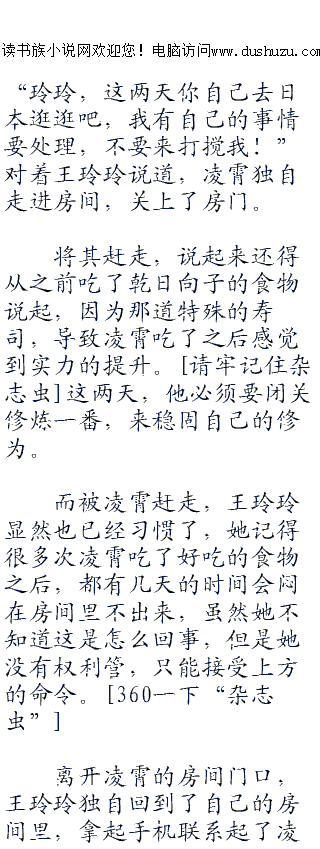 读书族小说网欢迎您！电脑访问www.dushuzu.com
“玲玲，这两天你自己去日
本逛逛吧，我有自己的事情
要处理，不要来打搅我！”
对着王玲玲说道，凌霄独自
走进房间，关上了房门。
将其赶走，说起来还得
从之前吃了乾日向子的食物
说起，因为那道特殊的寿
司，导致凌霄吃了之后感觉
到实力的提升。[请牢记住杂
志虫]这两天，他必须要闭关
修炼一番，来稳固自己的修
为。
而被凌霄赶走，王玲玲
显然也已经习惯了，她记得
很多次凌霄吃了好吃的食物
之后，都有几天的时间会闷
在房间里不出来，虽然她不
知道这是怎么回事，但是她
没有权利管，只能接受上方
的命令。[360一下“杂志
虫”]
离开凌霄的房间门口，
王玲玲独自回到了自己的房
间里，拿起手机联系起了凌